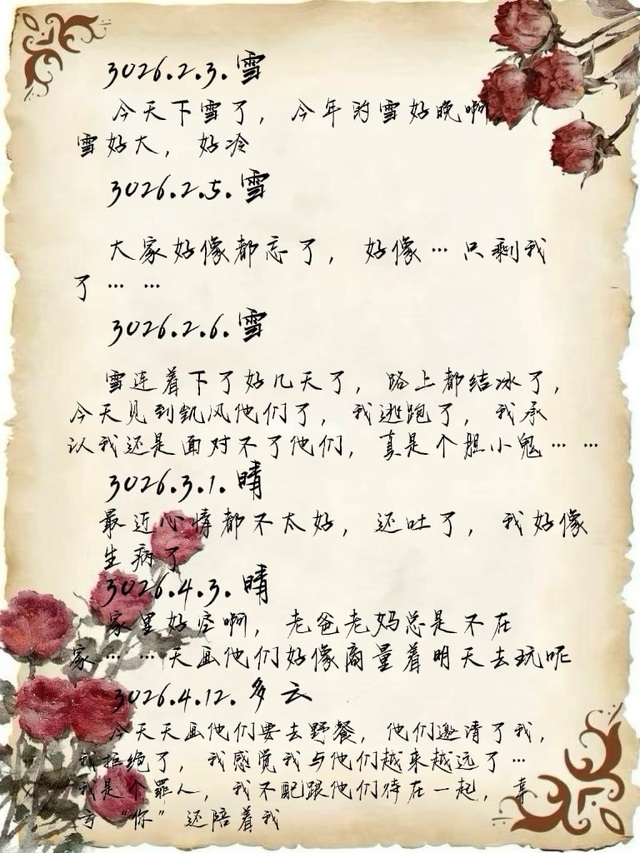 3026.2.3.雪
今天下雪了，今年的雪好晚啊，
雪好大，好冷
3026.2.5.雪
大家好像都忘了，好像…只剩我
了……
3026.2.6.雪
雪连着下了好几天了，路上都结冰了，
今天见到凯风他们了，我逃跑了，我承
认我还是面对不了他们，真是个胆小鬼……
3026.3.1.晴
最近心情都不太好，还吐了，我好像
生病了
3026.4.3.晴
家里好空啊，老爸老妈总是不在
家……天画他们好像商量着明天去玩呢
3026.4.12.多云
今天天画他们要去野餐，他们邀请了我，
我拒绝了，我感觉我与他们越来越远了…
我是个罪人，我不配跟他们待在一起，幸
亏“你”还陪着我